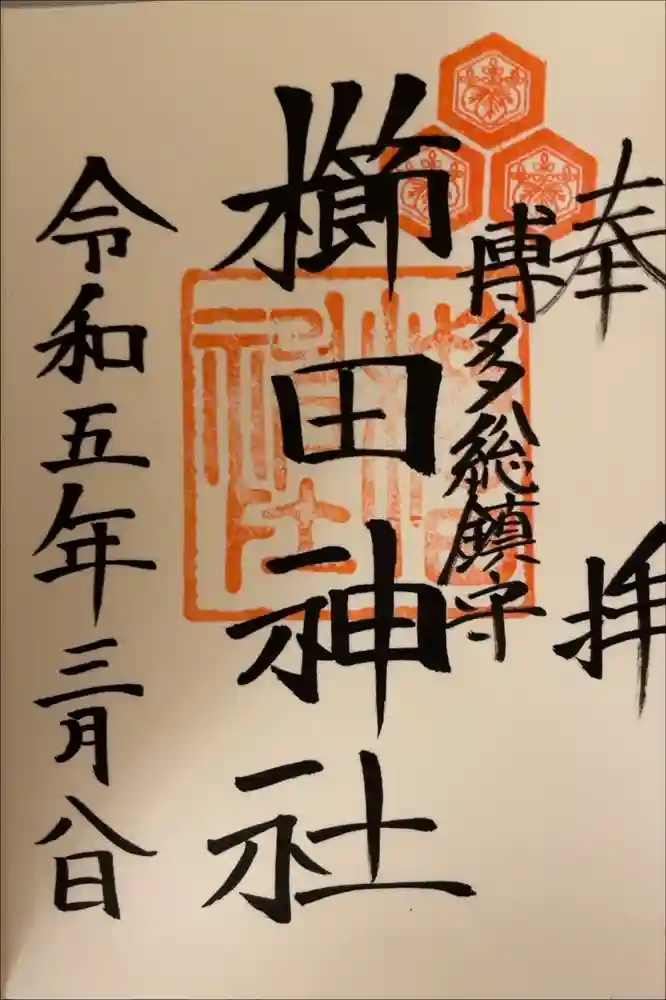 奉拝
博多総鎮守
櫛田神社
令和五年三月八日